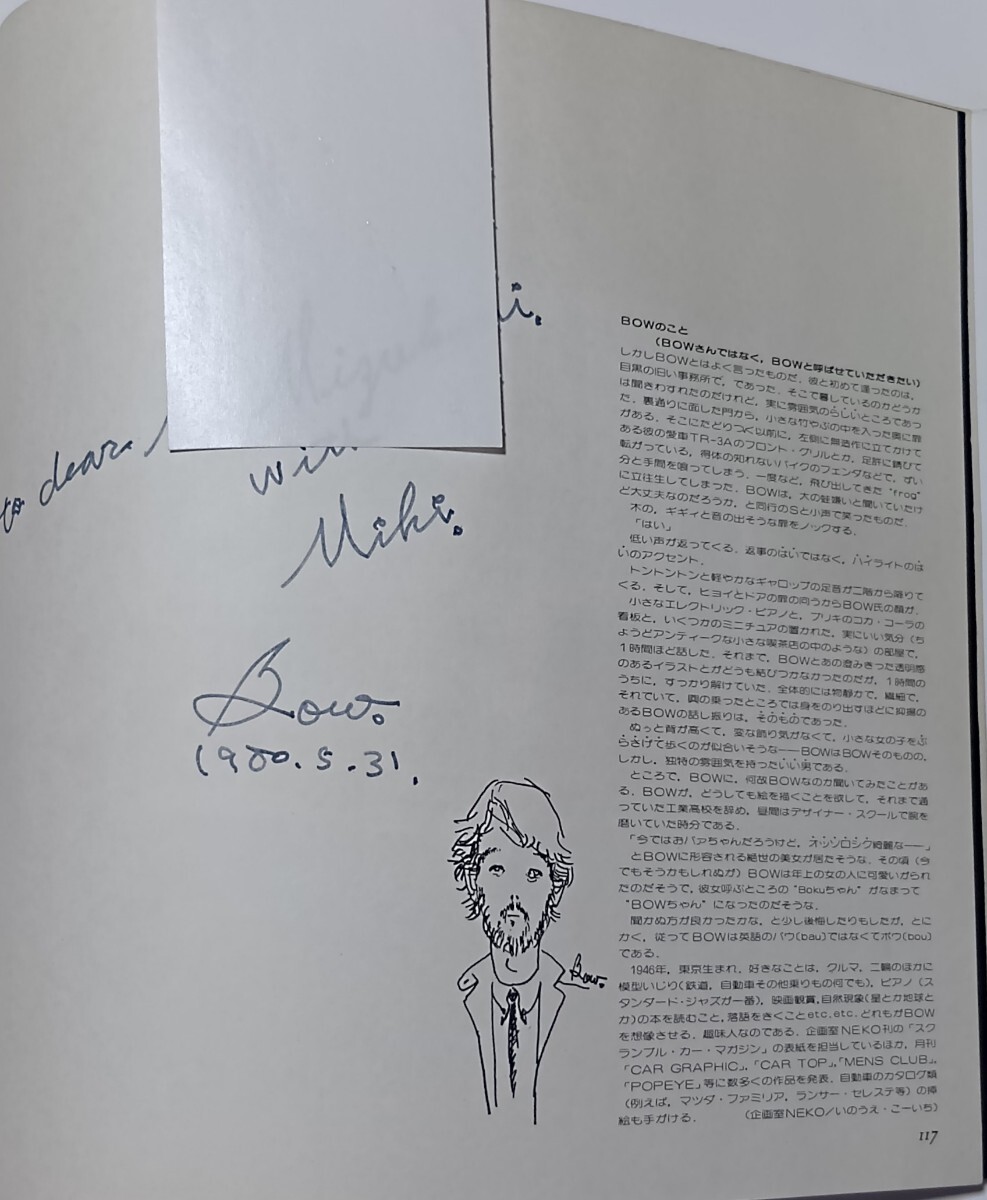 to dear
i.
Miki.
Bow.
1980.5.31.
Bow.
BOWのこと
(BOWさんではなく，BOWと呼ばせていただきたい)
しかしBOWとはよく言ったものだ．彼と初めて逢ったのは，
目黒の旧い事務所で，であった．そこで暮しているのかどうか
は聞きわすれたのだけれど，実に雰囲気のらしいところであっ
た．裏通りに面した門から，小さな竹やぶの中を入った奥に扉
がある．そこにたどりつく以前に，左側に無造作に立てかけて
ある彼の愛車TR-3Aのフロント・グリルとか，足許に錆びて
転がっている，得体の知れないバイクのフェンダなどで，ずい
分と手間を喰ってしまう．一度など，飛び出してきた“frog”
に立往生してしまった．BOWは，大の蛙嫌いと聞いていたけ
ど大丈夫なのだろうか，と同行のSと小声で笑ったものだ．
木の，ギギィと音の出そうな扉をノックする．
「はい」
低い声が返ってくる．返事のはいではなく，ハイライトのは
いのアクセント．
トントントンと軽やかなギャロップの足音が二階から降りて
くる．そして，ヒョイとドアの扉の向うからBOW氏の顔が．
小さなエレクトリック・ピアノと，ブリキのコカ・コーラの
看板と，いくつかのミニチュアの置かれた，実にいい気分（ち
ようどアンティークな小さな喫茶店の中のような）の部屋で，
1時間ほど話した．それまで，BOWとあの澄みきった透明感
のあるイラストとがどうも結びつかなかったのだが，1時間の
うちに，すっかり解けていた．全体的には物静かで，繊細で，
それでいて，興の乗ったところでは身をのり出すほどに抑揚の
あるBOWの話し振りは，そのものであった．
ぬっと背が高くて，変な飾り気がなくて，小さな女の子をぶ
らさげて歩くのが似合いそうな——BOWはBOWそのものの，
しかし，独特の雰囲気を持ったいい男である．
ところで，BOWに，何故BOWなのか聞いてみたことがあ
る．BOWが，どうしても絵を描くことを欲して，それまで通
っていた工業高校を辞め，昼間はデザイナー・スクールで腕を
磨いていた時分である．
「今ではおバァちゃんだろうけど，オッソロシク綺麗な——」
とBOWに形容される絶世の美女が居たそうな．その頃（今
でもそうかもしれぬが）BOWは年上の女の人に可愛いがられ
たのだそうで，彼女呼ぶところの“Bokuちゃん”がなまって
“BOWちゃん”になったのだそうな．
聞かぬ方が良かったかな，と少し後悔したりもしたが，とに
かく，従ってBOWは英語のバウ(bau)ではなくてボウ(bou)
である．
1946年，東京生まれ．好きなことは，クルマ，二輪のほかに
模型いじり(鉄道，自動車その他乗りもの何でも)，ピアノ（ス
タンダード・ジャズが一番），映画観賞，自然現象(星とか地球と
か)の本を読むこと，落語をきくことetc,etc.どれもがBOW
を想像させる．趣味人なのである．企画室NEKO刊の「スク
ランブル・カー・マガジン」の表紙を担当しているほか，月刊
「CAR GRAPHIC」，「CAR TOP」，「MENS CLUB」，
「POPEYE」等に数多くの作品を発表．自動車のカタログ類
（例えば，マツダ・ファミリア，ランサー・セレステ等）の挿
絵も手がける．　（企画室NEKO／いのうえ・こーいち）
117